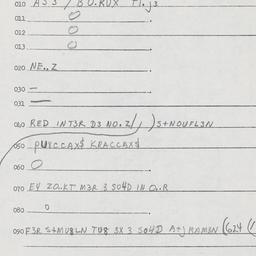 010 A53 / B O.RUX TI.J3
011 O
012 O
013 O
020 NE..Z
030 –
031 —
040 RED INT3R D3 NO.2/1 ) S+NOUFL3N
050 PUYCCAX$ KRACCAX$
060 O
070 EY ZO.KT M3R 3 SO4D IN O..R
080 O
090 F3R S+MU8LN TU8 3X 3 SO4D A+J HAM3N (624 (